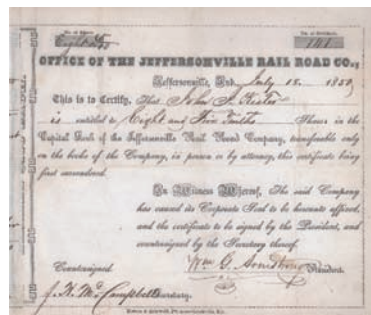 No. of Shares
No. of Certificate
Eight 5/10
141
OFFICE OF THE JEFFERSONVILLE RAIL ROAD CO.,
Jeffersonville, Ind. July 18. 1850,
This is to Certify, That John F.
is entitled to Eight and Five Tenths Shares in the
Capital Stock of the Jeffersonville Rail Road Company, transferable only
on the books of the Company, in person or by attorney, this certificate being
first surrendered.
In Witness Whereof, The said Company
has caused its Corporate Seal to be hereunto affixed,
and the certificate to be signed by the President, and
countersigned by the Secretary thereof.
Countersigned
Wm G. Armstrong President.
Campbell Secretary.